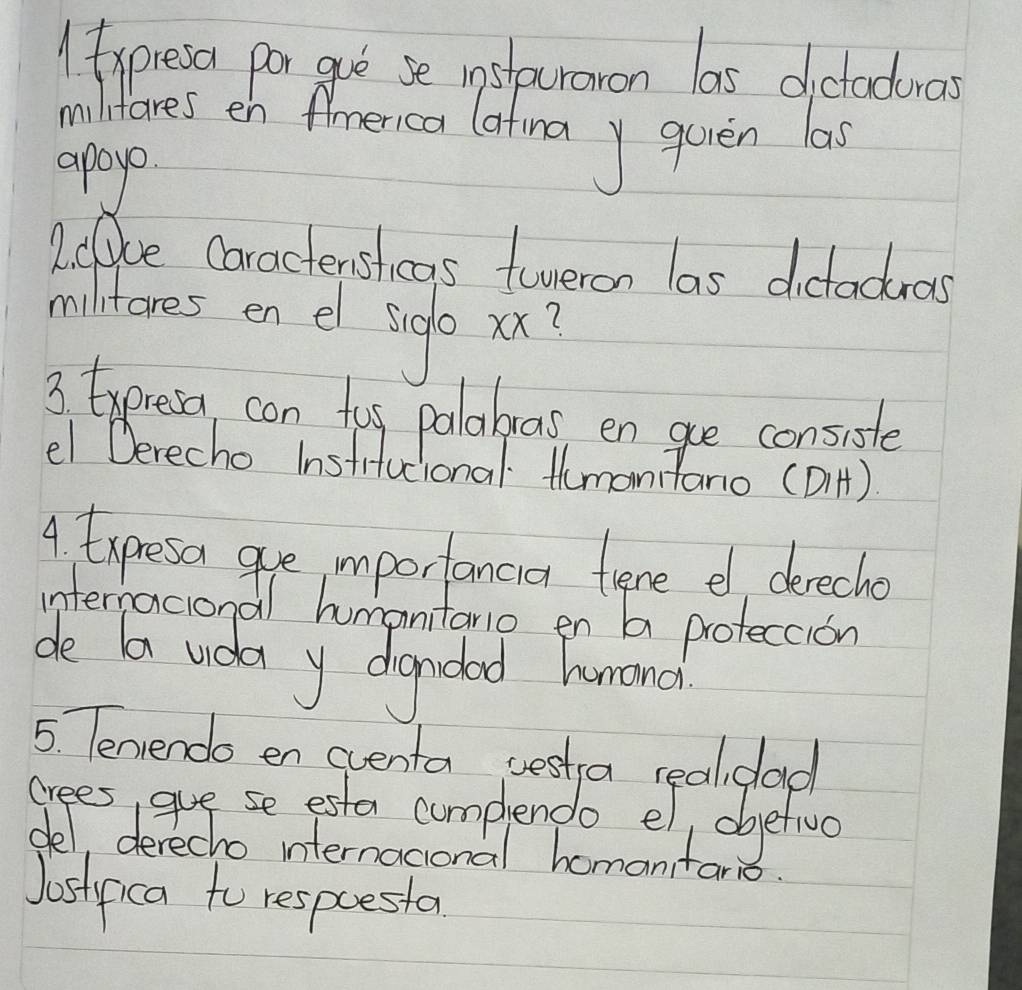 1. Expresa por qué se instauraron las dictaduras
militares en America latina y quién las
apoyo.
2. ¿Que caracteristicas tuvieron las dictaduras
militares en el siglo xx?
3. Expresa con tus palabras en que consiste
el Derecho Institucional Humanitario (DIH).
4. Expresa que importancia tiene el derecho
internacional humanitario en la protección
de la vida y dignidad humana.
5. Teniendo en cuenta vestra realidad
crees que se esta cumpliendo el objetivo
del derecho internacional homanitario.
Justifica tu respuesta.